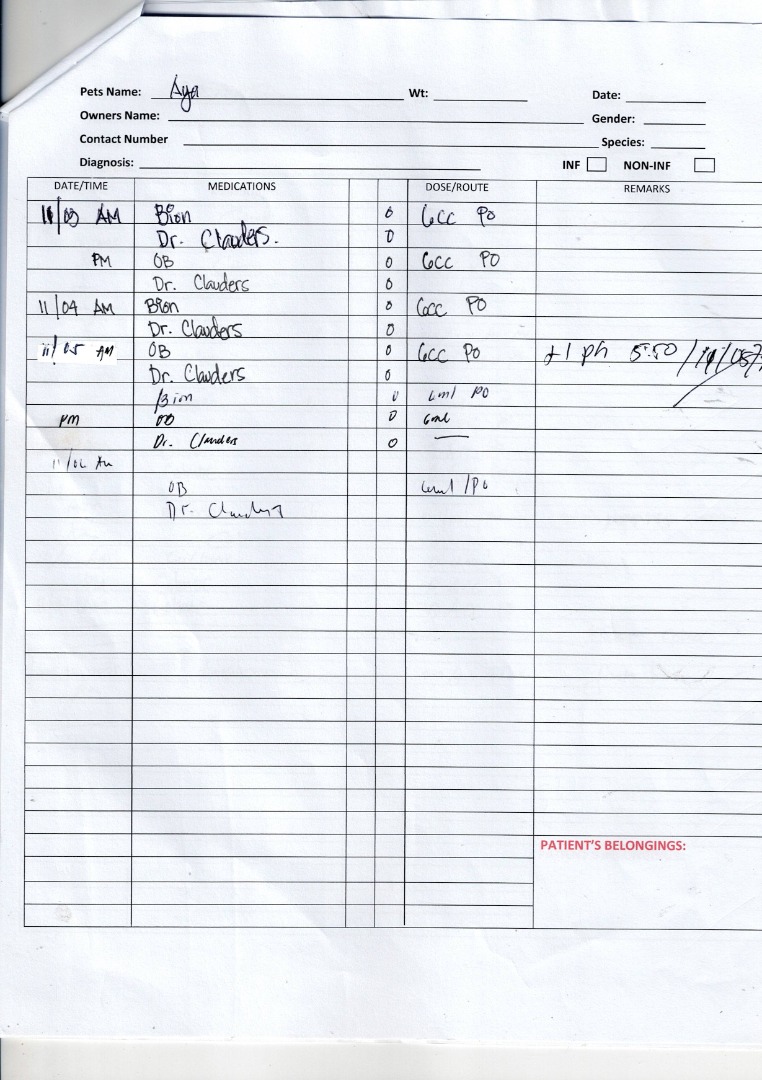 Pets Name: Aya Wt: Date:
Owners Name: Gender:
Contact Number Species:
Diagnosis: INF NON-INF
DATE/TIME MEDICATIONS DOSE/ROUTE REMARKS
11/03 AM Bion 0 6cc PO
Dr. Clauders. 0
PM OB 0 6cc PO
Dr. Clauders 0
11/04 AM Bion 0 6cc PO
Dr. Clauders 0
11/05 AM OB 0 6cc PO +1 ph 5:50 /11/05/
Dr. Clauders 0
Bion 0 6ml PO
PM OB 0 6ml
Dr. Clauders 0
11/06 AM
OB 6ml/PO
Dr. Clauders
PATIENT'S BELONGINGS: